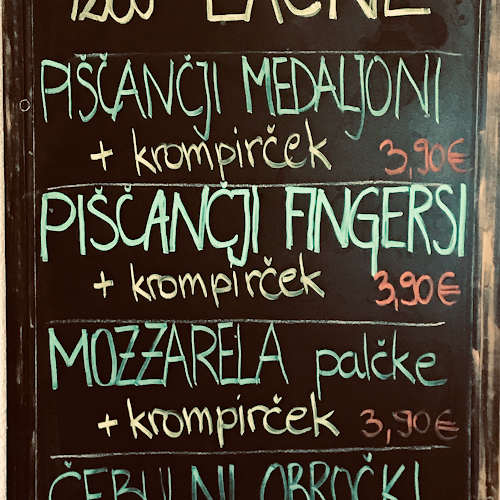 LAČNE
PIŠČANČJI MEDALJONI
+ krompirček 3,90€
PIŠČANČJI FINGERSI
+ krompirček 3,90€
MOZZARELA palčke
+ krompirček 3,90€
ČEBULNI OBROČKI